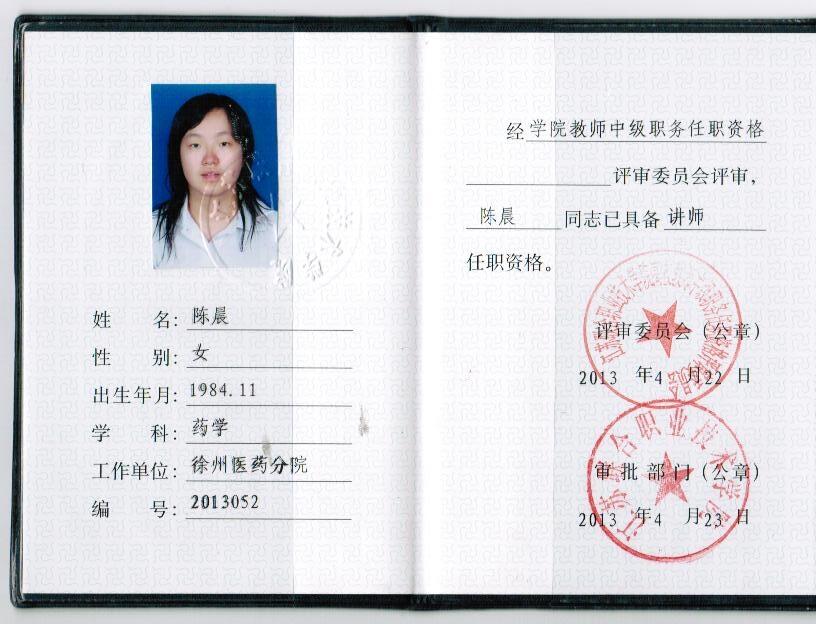 姓 名：陈晨
性 别：女
出生年月：1984.11
学 科：药学
工作单位：徐州医药分院
编 号：2013052
经学院教师中级职务任职资格
评审委员会评审，
陈晨 同志已具备 讲师
任职资格。
评审委员会（公章）
2013 年4 月22 日
审批部门（公章）
2013 年4 月23 日
江苏联合职业技术学院